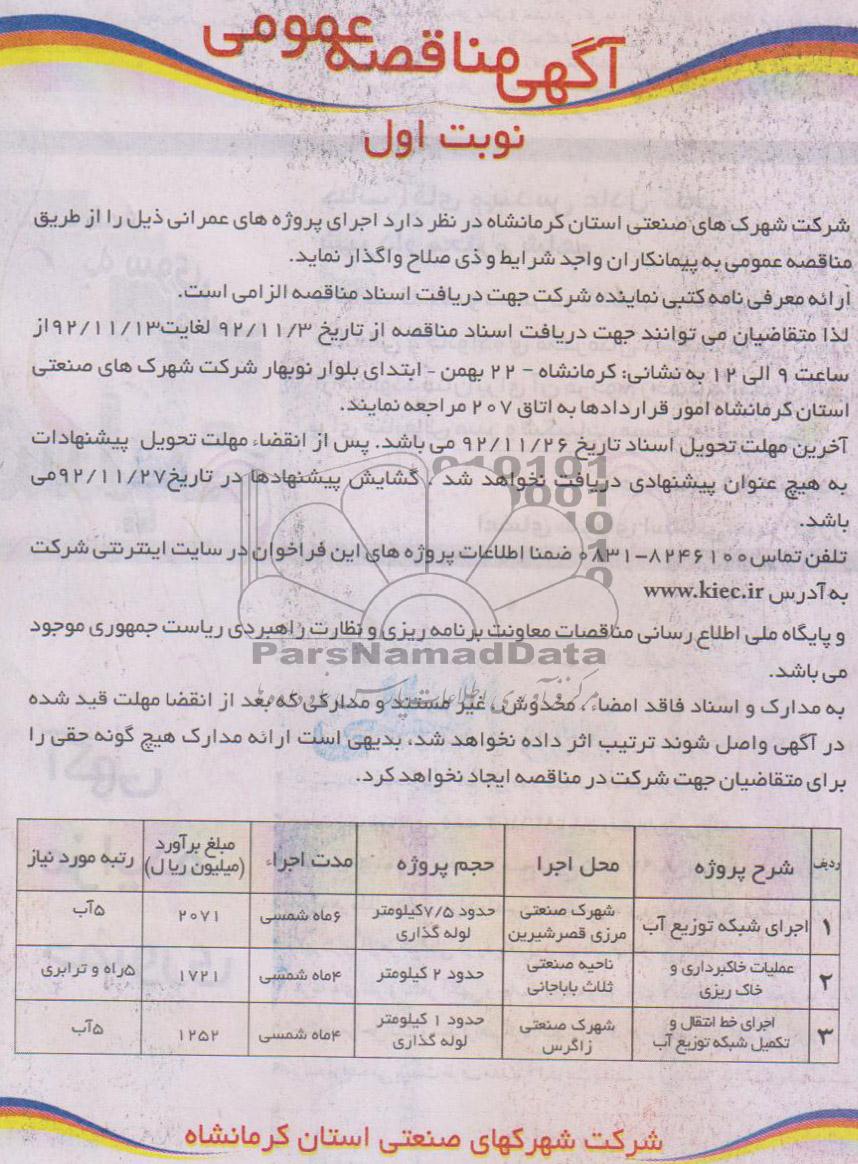 آگهی مناقصه عمومی
نوبت اول
شرکت شهرک های صنعتی استان کرمانشاه در نظر دارد اجرای پروژه های عمرانی ذیل را از طریق
مناقصه عمومی به پیمانکاران واجد شرایط و ذی صلاح واگذار نماید.
ارائه معرفی نامه کتبی نماینده شرکت جهت دریافت اسناد مناقصه الزامی است.
لذا متقاضیان می توانند جهت دریافت اسناد مناقصه از تاریخ ۹۲/۱۱/۳ لغایت۹۲/۱۱/۱۳از
ساعت ۹ الی ۱۲ به نشانی: کرمانشاه – ۲۲ بهمن - ابتدای بلوار نوبهار شرکت شهرک های صنعتی
استان کرمانشاه امور قراردادها به اتاق ۲۰۷ مراجعه نمایند.
آخرین مهلت تحویل اسناد تاریخ ۹۲/۱۱/۲۶ می باشد. پس از انقضاء مهلت تحویل پیشنهادات
به هیچ عنوان پیشنهادی دریافت نخواهد شد ، گشایش پیشنهادها در تاریخ۹۲/۱۱/۲۷می
باشد.
تلفن تماس۸۲۴۶۱۰۰-۰۸۳۱ ضمنا اطلاعات پروژه های این فراخوان در سایت اینترنتی شرکت
به آدرس www.kiec.ir
و پایگاه ملی اطلاع رسانی مناقصات معاونت برنامه ریزی و نظارت راهبردی ریاست جمهوری موجود
می باشد.
ParsNamadData
به مدارک و اسناد فاقد امضاء، مخدوش، غیر مستند و مدارکی که بعد از انقضا مهلت قید شده
در آگهی واصل شوند ترتیب اثر داده نخواهد شد، بدیهی است ارائه مدارک هیچ گونه حقی را
برای متقاضیان جهت شرکت در مناقصه ایجاد نخواهد کرد.
ردیف شرح پروژه محل اجرا حجم پروژه مدت اجراء مبلغ برآورد (میلیون ریال) رتبه مورد نیاز
۱ اجرای شبکه توزیع آب شهرک صنعتی مرزی قصرشیرین حدود ۷/۵کیلومتر لوله گذاری ۶ماه شمسی ۲۰۷۱ ۵آب
۲ عملیات خاکبرداری و خاک ریزی ناحیه صنعتی ثلاث باباجانی حدود ۲ کیلومتر ۴ماه شمسی ۱۷۲۱ ۵راه و ترابری
۳ اجرای خط انتقال و تکمیل شبکه توزیع آب شهرک صنعتی زاگرس حدود ۱ کیلومتر لوله گذاری ۴ماه شمسی ۱۲۵۲ ۵آب
شرکت شهرکهای صنعتی استان کرمانشاه